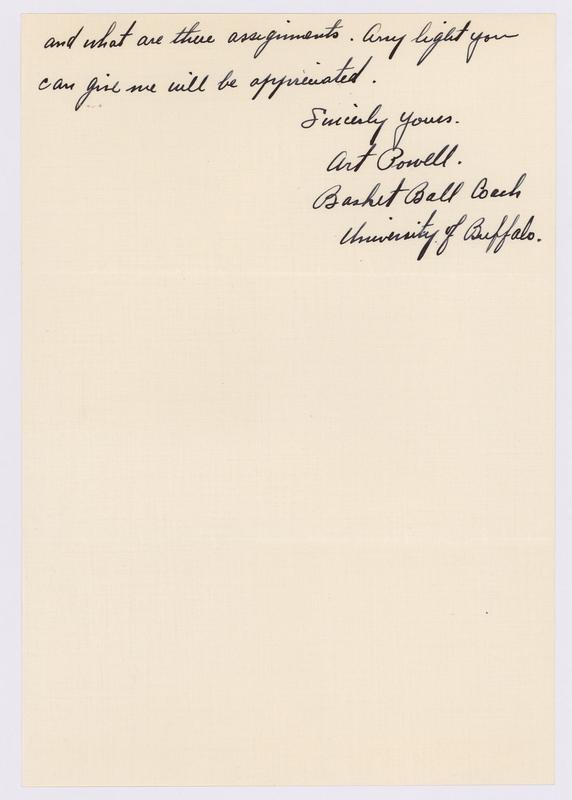 and what are there assignments. Any light you
can give me will be appriciated.
Sincerly yours.
Art Powell.
Basket Ball Coach
University of Buffalo.